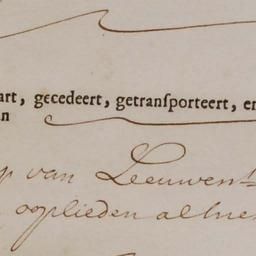 art, gecedeert, getransporteert, en
n
p van Leeuwen
ooplieden alhie